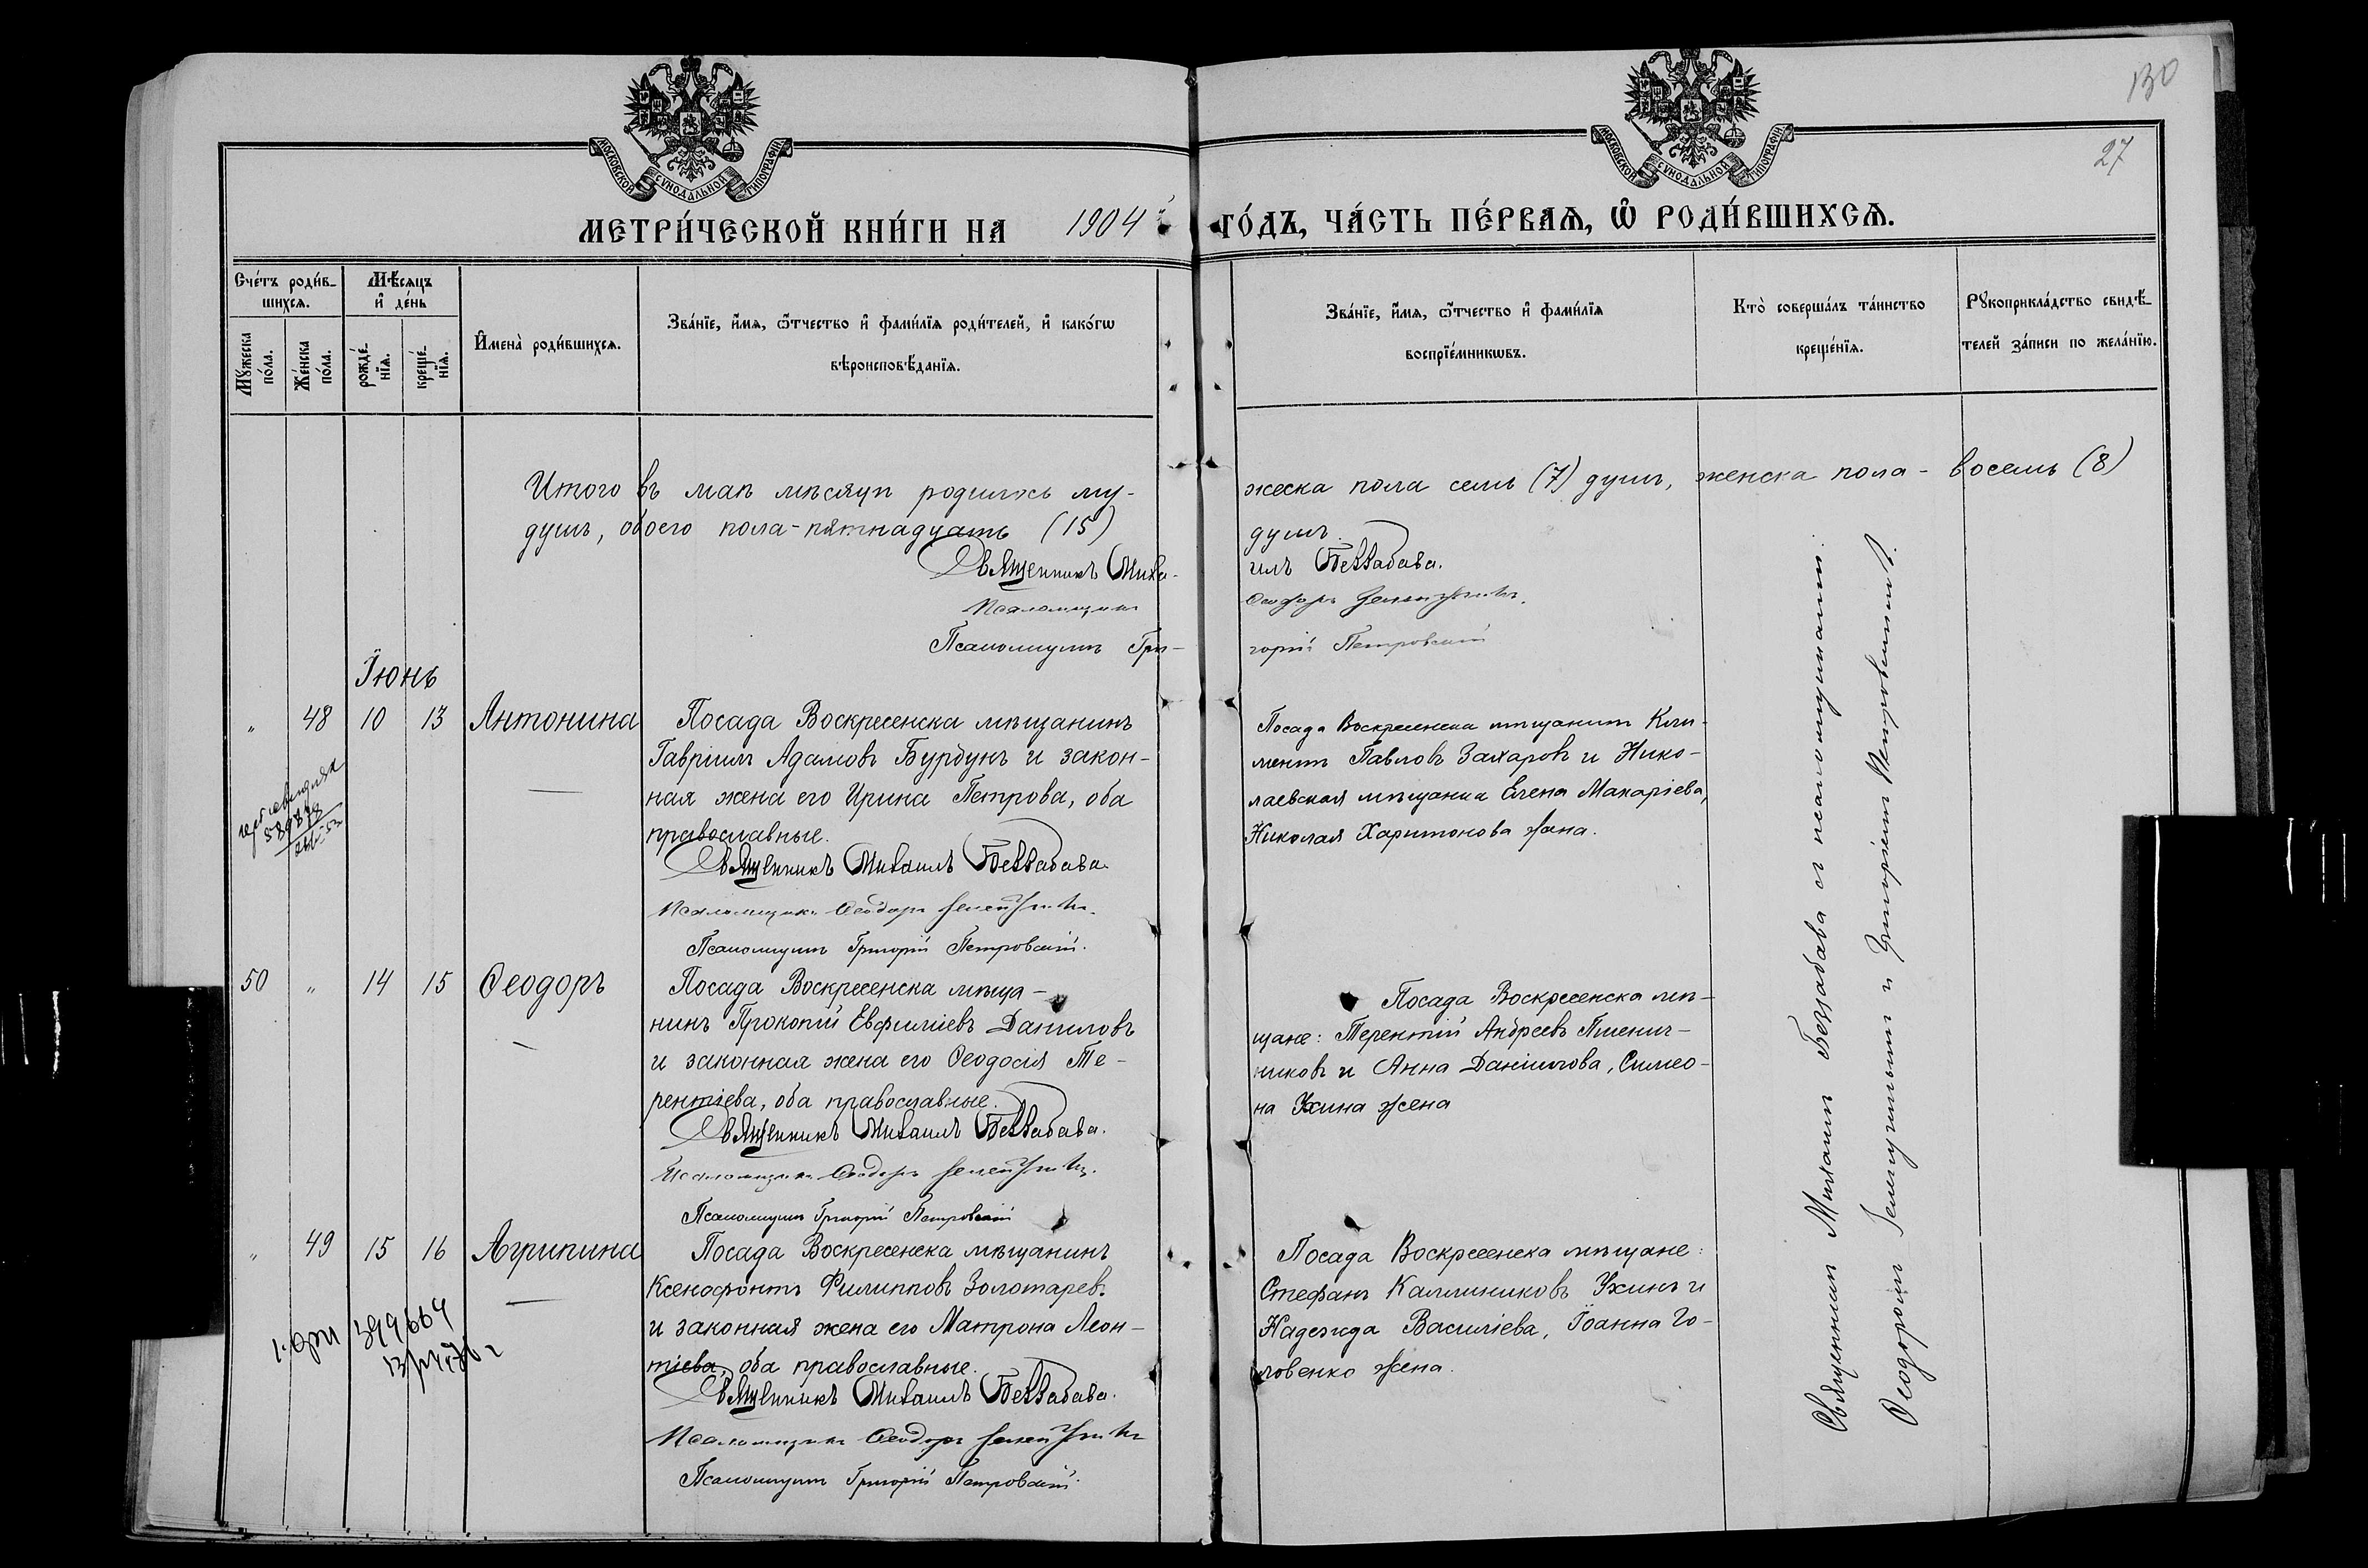 130
27
МОСКОВСКОЙ СѴНОДАЛЬНОЙ ТИПОГРАФІИ
МОСКОВСКОЙ СѴНОДАЛЬНОЙ ТИПОГРАФІИ
МЕТРИ́ЧЕСКОЙ КНИ́ГИ НА 1904й ГО́ДЪ, ЧА́СТЬ ПЕ́РВАѦ, Ѿ РОДИ́ВШИХСѦ.
Сче́тъ роди́в-
шихсѧ.
Мꙋжеска по́ла.
Же́нска по́ла.
Мѣ́сѧцъ
и҆ де́нь
рожде́-
нїѧ.
креще́-
нїѧ.
И҆мена̀ роди́вшихсѧ.
Зва́нїе, и҆́мѧ, ѻ҆́тчество и҆ фами́лїѧ роди́телей, и҆ како́гѡ
вѣроисповѣ́данїѧ.
Зва́нїе, и҆́мѧ, ѻ҆́тчество и҆ фами́лїѧ
воспрїе́мникѡвъ.
Кто̀ соверша́лъ та́инство
креще́нїѧ.
Рꙋкоприкла́дство свидѣ́-
телей за́писи по жела́нїю.
Итого въ маѣ мѣсяцѣ родилось му-
жеска пола семь (7) душъ, женска пола - восемь (8)
душъ, обоего пола - пятнадцать (15)
душъ.
Священникъ Миха-
илъ Беззабава.
Псаломщикъ
Ѳеодоръ
Псаломщикъ Гри-
горій Петровскій
Іюнь
" 48 10 13 Антонина
Посада Воскресенска мѣщанинъ
Гавріилъ Адамовъ Бурдунъ и закон-
ная жена его Ирина Петрова, оба
православные.
Священникъ Михаилъ Беззабава.
Псаломщикъ Ѳеодоръ
Псаломщикъ Григорій Петровскій.
Посада Воскресенска мѣщанинъ Кли-
ментъ Павловъ Захаровъ и Нико-
лаевская мѣщанка Елена Макаріева,
Николая Харитонова жена.
50 " 14 15 Ѳеодоръ
Посада Воскресенска мѣща-
нинъ Прокопій Евфиміевъ Даниловъ
и законная жена его Ѳеодосія Те-
рентіева, оба православные.
Священникъ Михаилъ Беззабава.
Псаломщикъ Ѳеодоръ
Псаломщикъ Григорій Петровскій
Посада Воскресенска мѣ-
щане: Терентій Андреевъ Пшенич-
никовъ и Анна Даніилова, Симео-
на Ухина жена
" 49 15 16 Агрипина
Посада Воскресенска мѣщанинъ
Ксенофонтъ Филипповъ Золотаревъ
и законная жена его Матрона Леон-
тіева, оба православные.
Священникъ Михаилъ Беззабава.
Псаломщикъ Ѳеодоръ
Псаломщикъ Григорій Петровскій.
399664
Посада Воскресенска мѣщане:
Стефанъ Каллиниковъ Ухинъ и
Надежда Василіева, Іоанна Го-
ловенко жена.
Священникъ Михаилъ Беззабава съ псаломщиками:
Ѳеодоромъ и Григоріемъ Петровскимъ.